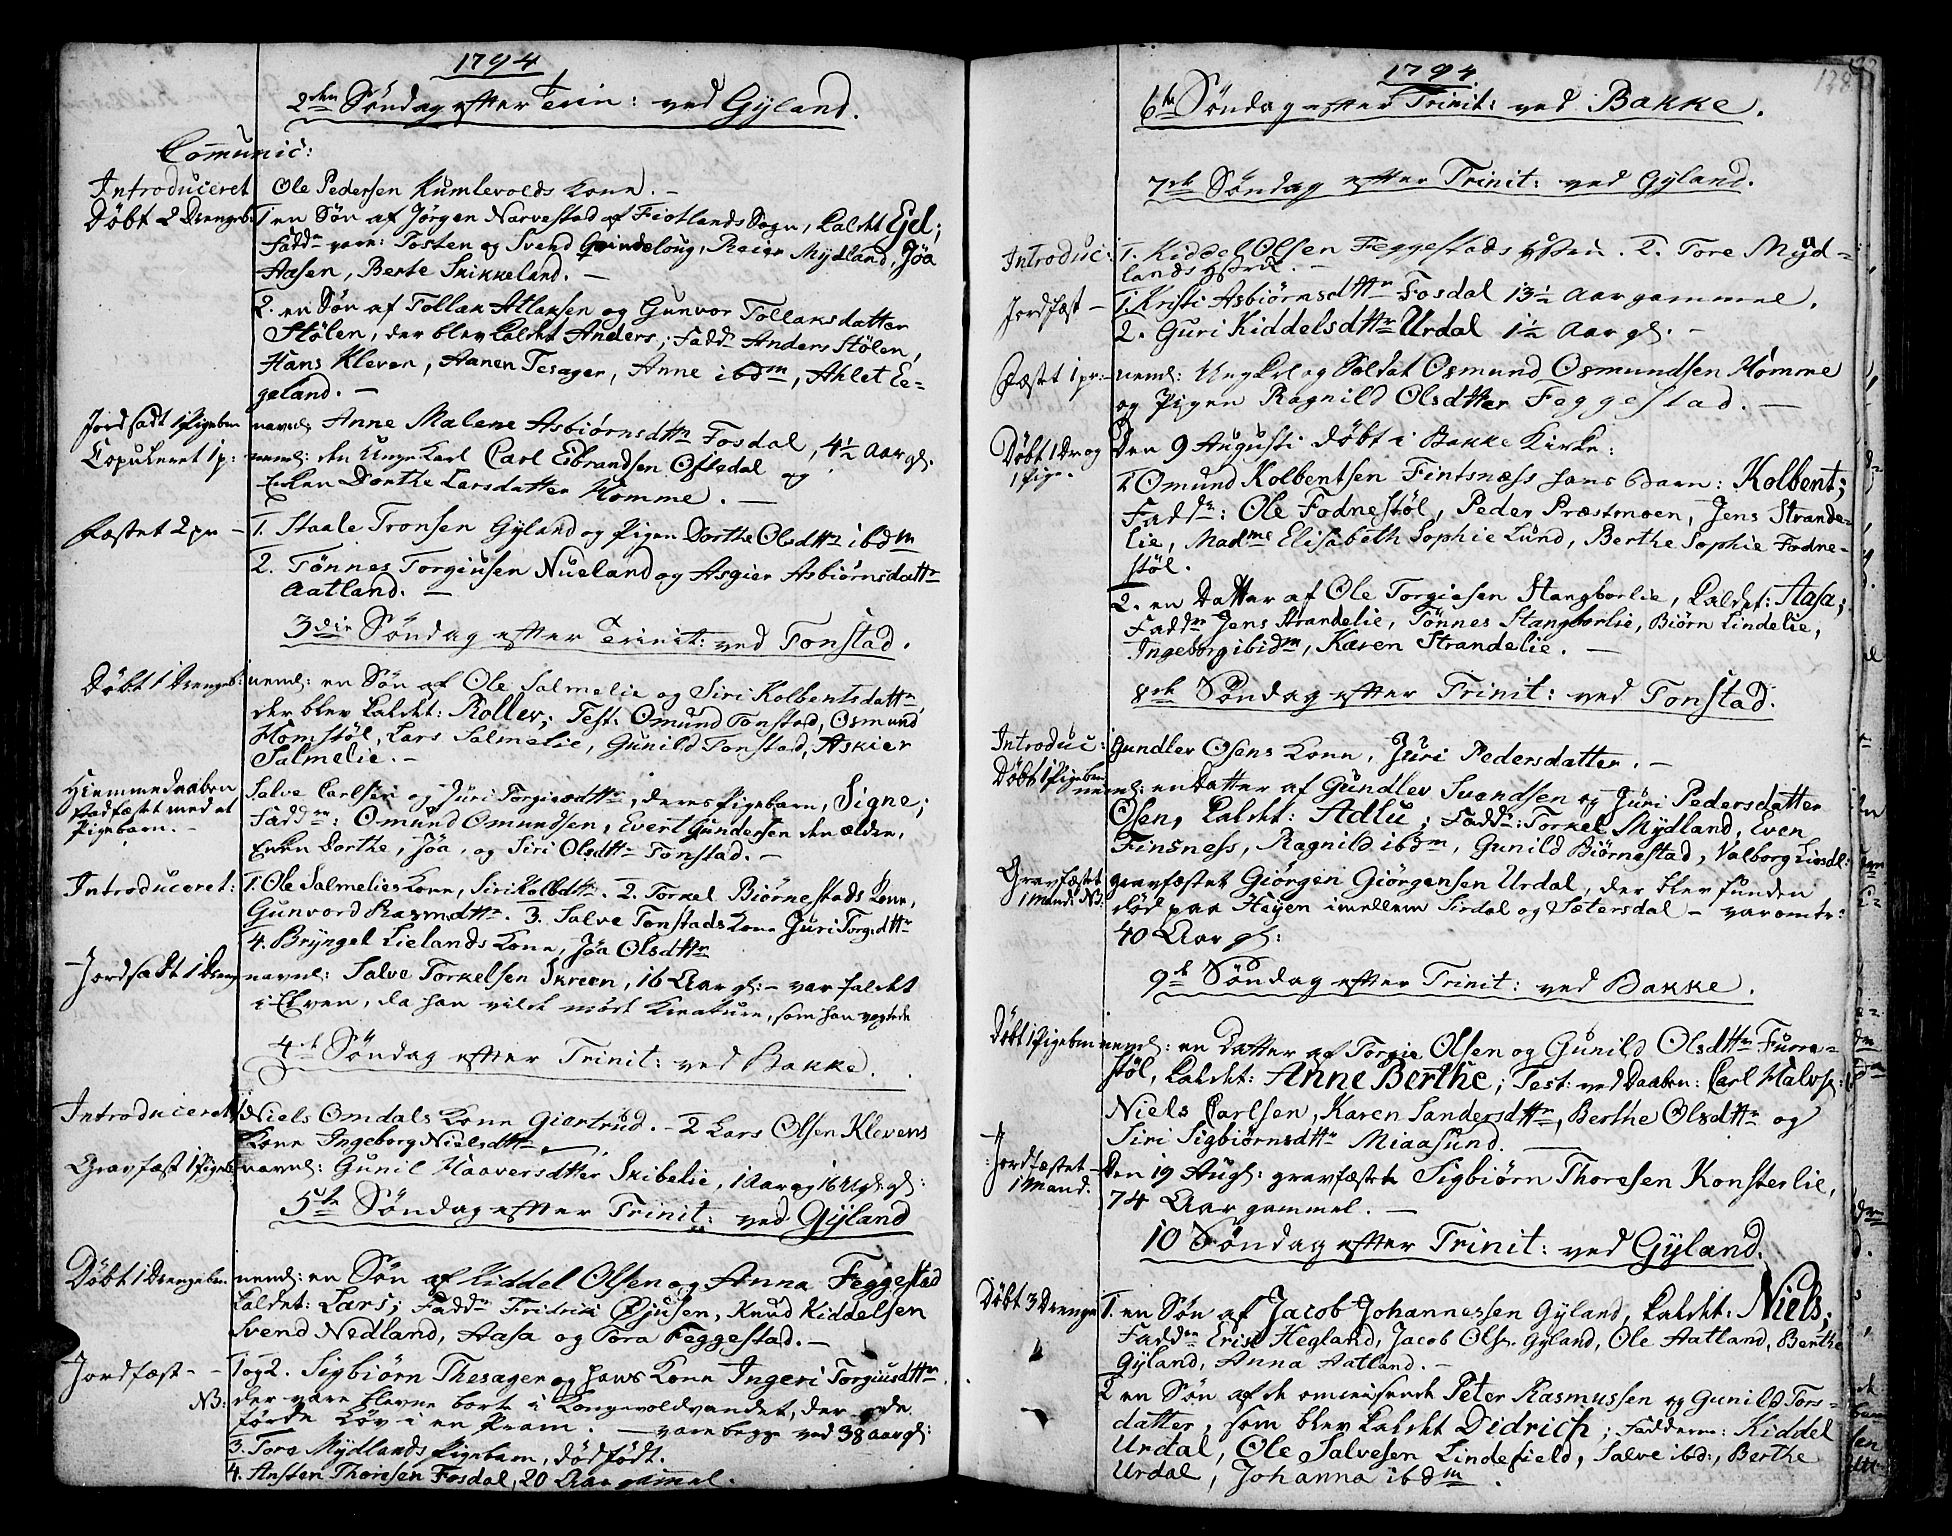 1794
2den Söndag efter Trin: ved Gÿland.
Comunic:
Introduceret Ole Pedersen Kumlevolds Kone. -
Döbt 2 Drengeb: 1 en Sön af Jörgen Narvestad af Fiotlands Sogn, kaldet Ejel;
Faddn vare: Tosten og Svend Grindeloug, Reier Mÿdland, Jöa
Aasen, Berte Skikkeland. -
2. en Sön af Tollak Atlaksen og Gunvor Tollaksdatter
Stölen, der blev kaldet Anders; Faddn Anders Stölen,
Hans Kleven, Aanen Tesager, Anne ibdm, Ahlet Ee-
geland. -
Jordsadt 1 Pigebm navnl: Anne Malene Asbiörnsdttr Fosdal, 4½ Aar gl.
Copuleret 1 p: neml: den Unge Karl Carl Eibrandsen Oftedal og
Enken Dorthe Larsdatter Homme. -
Fæstet 2 pr - 1. Staale Tronsen Gÿland og Pigen Dorthe Olsdttr ibdm
2. Tönnes Torgiusen Nueland og Asgier Asbiörnsdattr
Aatland. -
3die Söndag efter Trinit: ved Tonstad.
Döbt 1 Drengeb: neml: en Sön af Ole Salmelie og Siri Kolbentsdattr
der blev kaldet: Rollev; Test: Omund Tonstad, Osmund
Homstöl, Lars Salmelie, Gunild Tonstad, Askier
Salmelie. -
Hiemmedaaben Salve Carlsen og Juri Torgiesdttr, deres Pigebarn, Signe;
stadfæstet med et Faddrn: Omund Omundsen, Evert Gundersen den ældre,
Pigebarn. - Enken Dorthe, Jöa, og Siri Olsdttr Tonstad. -
Introduceret: 1. Ole Salmelies Kone, Siri Kolbdttr. 2. Torkel Biörnestads Kone,
Gunvord Rasmdttr. 3. Salve Tonstads Kone Juri Torgsdttr
4. Brÿngel Lielands Kone, Jöa Olsdttr
Jordsadt 1 Dreng navnl: Salve Torkelsen Skreen, 16 Aar gl: - var faldet
i Elven, da han vilde möde Kreature, som han vogtede
4de Söndag efter Trinit: ved Bakke.
Introduceret 1 Niels Omdals Kone Giertrud. - 2 Lars Olsen Klevens
Kone Ingeborg Nielsdttr
Gravfæst 1 Pigeb: navnl: Gunil Haaversdtter Skibelie, 1 Aar og 16 Ugl: gl:
5te Söndag efter Trinit: ved Gÿland
Döbt 1 Drengebm neml: en Sön af Kiddel Olsen og Anna Feggestad
kaldet: Lars; Faddrn Fridrik Öjusen, Knud Kiddelsen
Svend Nedland, Aasa og Tora Feggestad. -
Jordfæst - - 1 og 2. Sigbiörn Thesager og hans Kone Ingeri Torgiusdttr
NB: der vare blevne borte i Longevoldvandet, der de
förde Löv i en Pram. - vare begge ved 38 aar gl:
3. Tore Mÿdlands Pigebarn, dödfödt.
4. Ansten Thoresen Fosdal, 20 Aar gamel.
1794
6te Söndag efter Trinit: ved Bakke.
7de Söndag efter Trinit: ved Gÿland.
Introduc: 1. Kiddel Olsen Feggestads Hstru. 2. Tore Mÿd-
lands Hstru. -
Jordfæst - 1. Kristi Asbiörnsdttr Fosdal 13½ Aar gammel.
2. Guri Kiddelsdttr Urdal 1½ Aar gl. -
Fæstet 1 pr: - neml: Ungkarl og Soldat Osmund Osmundsen Homme
og Pigen Ragnild Olsdtter Feggestad. -
Döbt 1 Dr og Den 9 Augusti döbt i Bakke Kirke:
1 Pige. 1. Omund Kolbentsen Fintsnæss hans Barn: Kolbent;
Faddr: Ole Fodnestöl, Peder Præstmoen, Jens Strande-
lie, Madme Elisabeth Sophie Lund, Berthe Sophie Fodne-
stöl.
2. en Datter af Ole Torgiesen Stangborlie, kaldet: Aasa;
Faddrn Jens Strandelie, Tönnes Stangborlie, Biörn Lindelie,
Ingeborg ibidm, Karen Strandelie. -
8de Söndag efter Trinit: ved Tonstad.
Introduc: Gundlev Osens Kone, Juri Pedersdatter. -
Döbt 1 Pigebm neml: en Datter af Gundlev Svendsen og Juri Pedersdatter
Osen, kaldet: Adlu; Faddr: Torkel Mÿdland, Even
Finsness, Ragnild ibdm, Gunild Biörnestad, Valborg Liosdl:
Gravfæstet gravfæstet Giörgen Giörgensen Urdal, der blev funden
1 Mand: NB: död paa Heÿen imellem Sirdal og Sætersdal - var omtr:
40 Aar gl:
9de Söndag efter Trinit: ved Bakke.
Döbt 1 Pigebm neml: en Datter af Torgie Olsen og Gunild Olsdttr Furre-
stöl, kaldet: Anne Berthe; Test: ved Daaben: Carl Halvs:
Niels Carlsen, Karen Sandersdttr, Berthe Olsdttr og
Siri Sigbiörnsdttr Miaasund. -
Jordfæstet - Den 19 Augl: gravfæstet Sigbiörn Thoresen Konsterlie,
1 Mand. 74 Aar gammel. -
10 Söndag efter Trinit: ved Gÿland.
Döbt 3 Drenge 1. en Sön af Jacob Johannessen Gÿland, kaldet: Niels;
Faddrn Erik Hegland, Jacob Olsn Gÿland, Ole Aatland, Berthe
Gÿland, Anna Aatland. -
2 en Sön af de omreisende Peter Rasmussen og Gunild Tors-
datter, som blev kaldet Didrich; Fadderne: Kiddel
Urdal, Ole Salvesen Lindefield, Salve ibd:, Berthe
Urdal, Johanna ibdm.